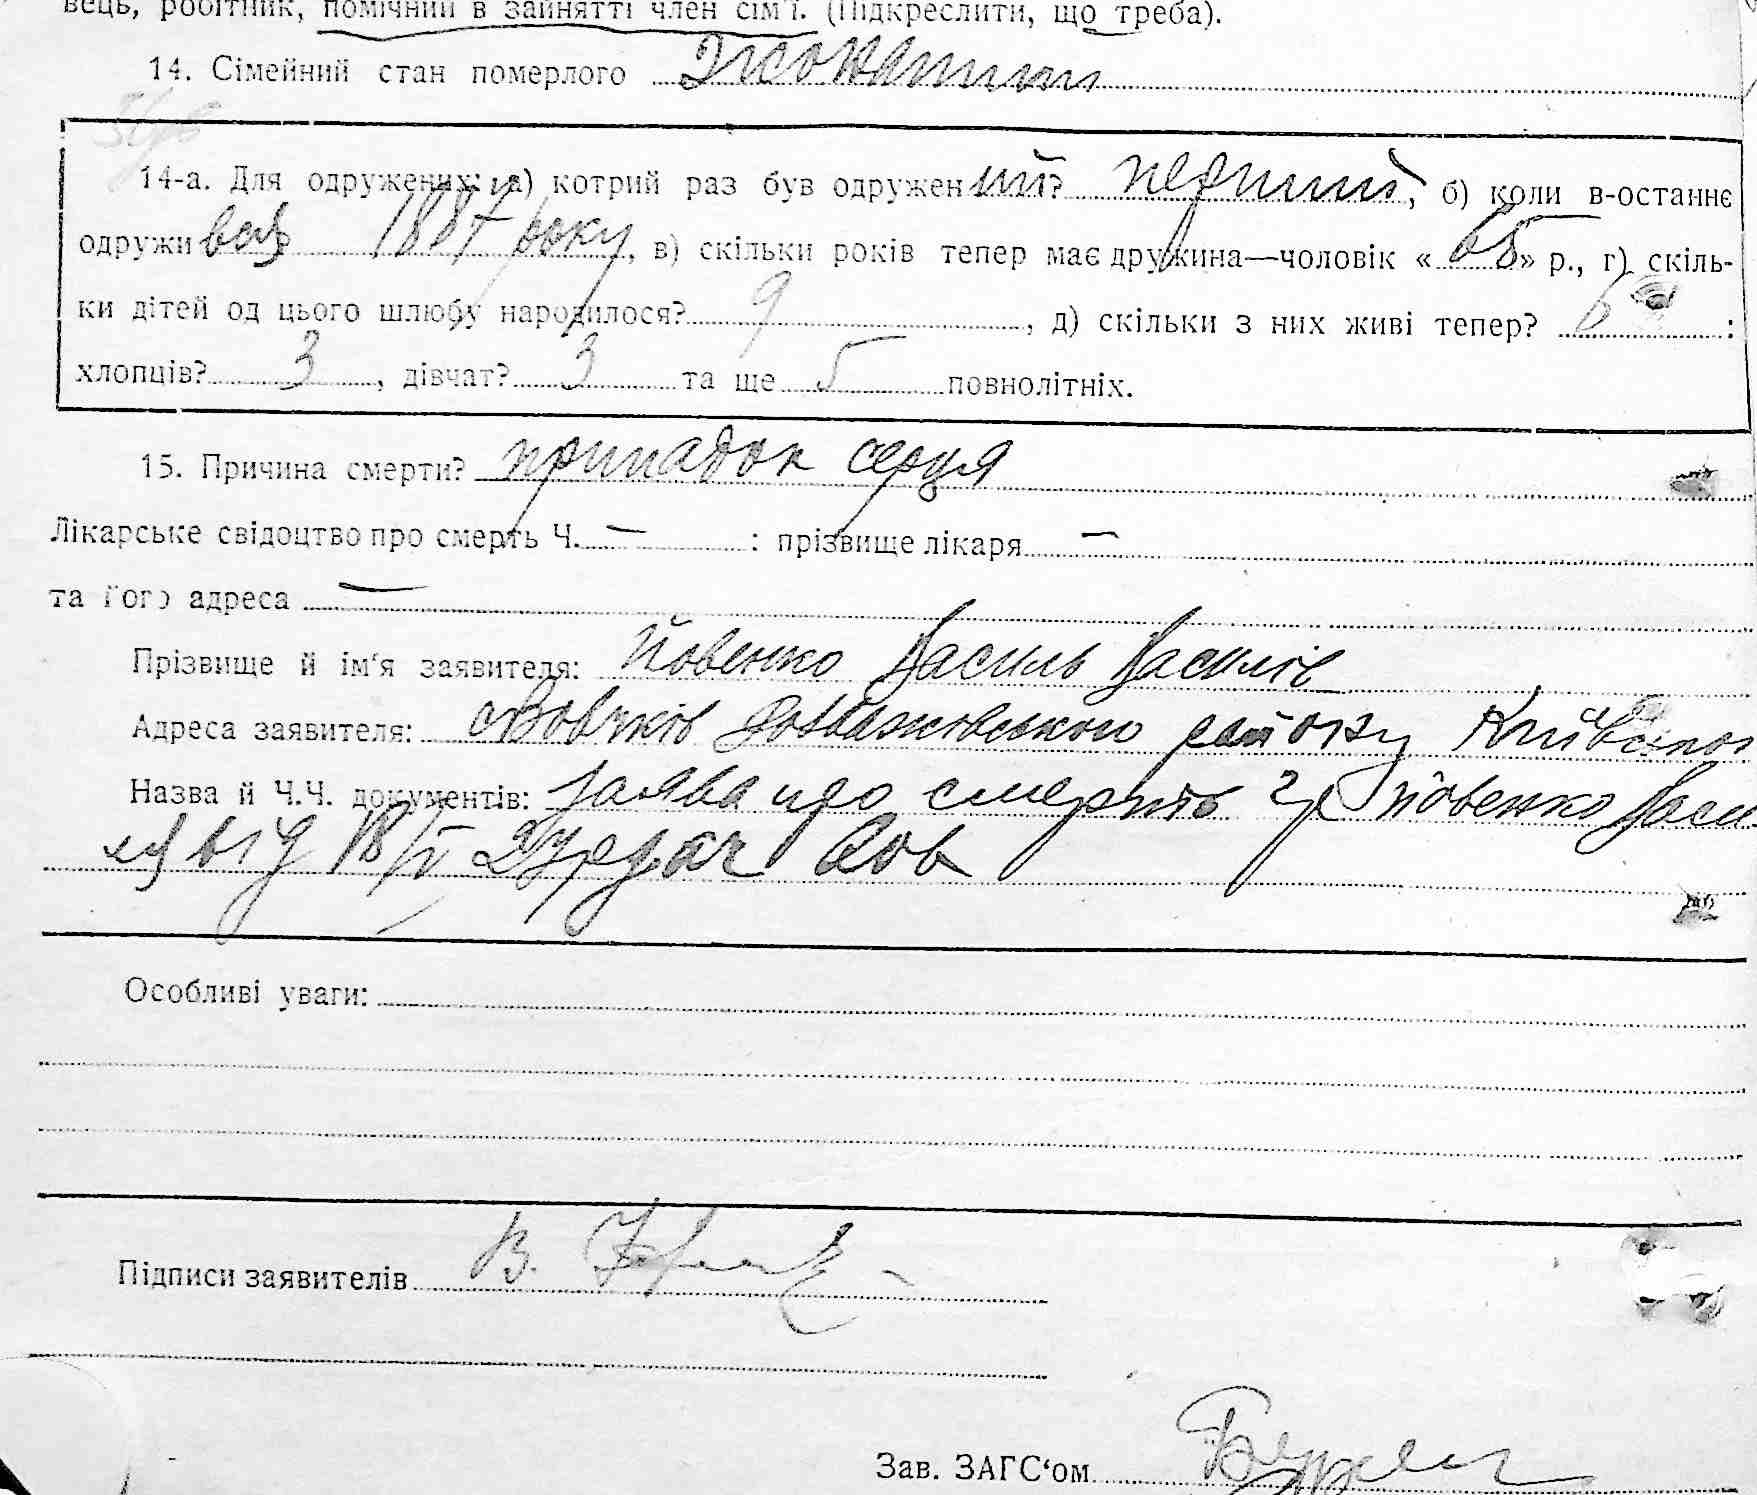 вець, робітник, помічний в зайнятті член сім'ї. (Підкреслити, що треба).
14. Сімейний стан померлого Жонатий
14-а. Для одружених: а) котрий раз був одружений? перший, б) коли в-останнє
одруживсь 1887 року, в) скільки років тепер має дружина—чоловік «65» р., г) скіль-
ки дітей од цього шлюбу народилося? 9, д) скільки з них живі тепер? 6:
хлопців? 3, дівчат? 3 та ще 5 повнолітніх.
15. Причина смерти? припадок серця
Лікарське свідоцтво про смерть Ч. — : прізвище лікаря —
та його адреса —
Прізвище й ім'я заявителя: Йовенко Василь Василів
Адреса заявителя: району
Назва й Ч.Ч. документів: заява про смерть гр Йовенко Васи
ля від 18/IV
Особливі уваги:
Підписи заявителів В.
Зав. ЗАГС'ом